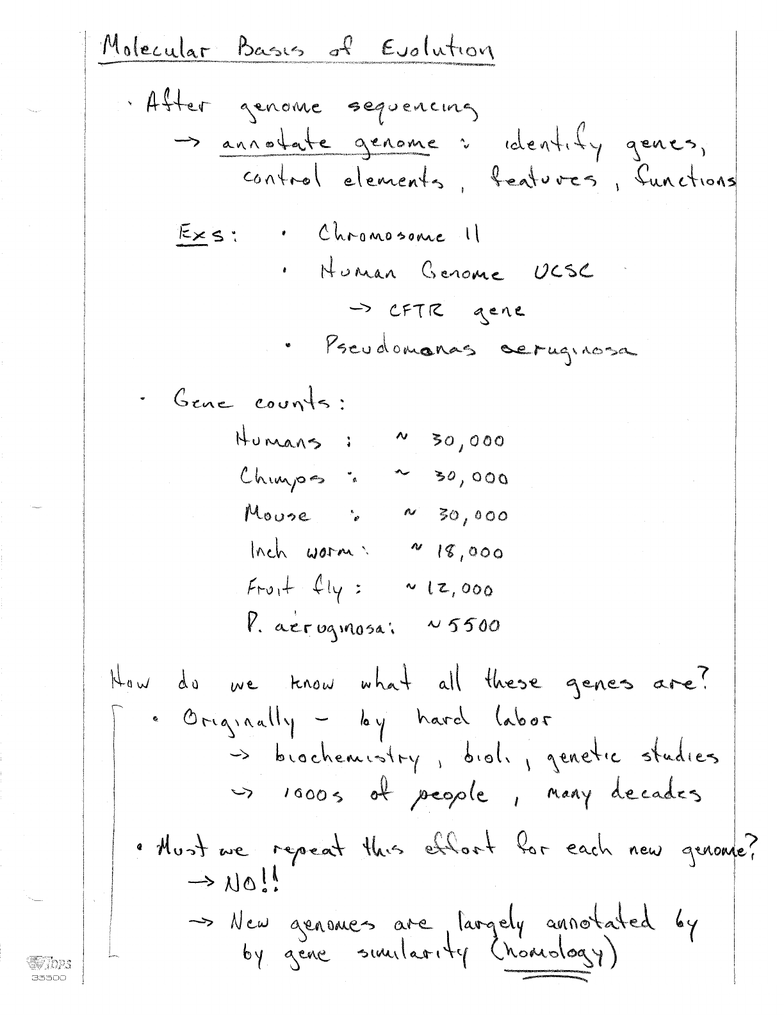 Molecular Basis of Evolution
· After genome sequencing
→ annotate genome : identify genes,
control elements, features, functions
Exs: · Chromosome 11
· Human Genome UCSC
→ CFTR gene
· Pseudomonas aeruginosa
· Gene counts:
Humans : ~ 30,000
Chimps : ~ 30,000
Mouse : ~ 30,000
Inch worm: ~ 18,000
Fruit fly : ~ 12,000
P. aeruginosa: ~5500
How do we know what all these genes are?
· Originally - by hard labor
→ biochemistry, biol., genetic studies
→ 1000s of people, many decades
· Must we repeat this effort for each new genome?
→ NO!!
→ New genomes are largely annotated by
by gene similarity (homology)
TOPS
35500